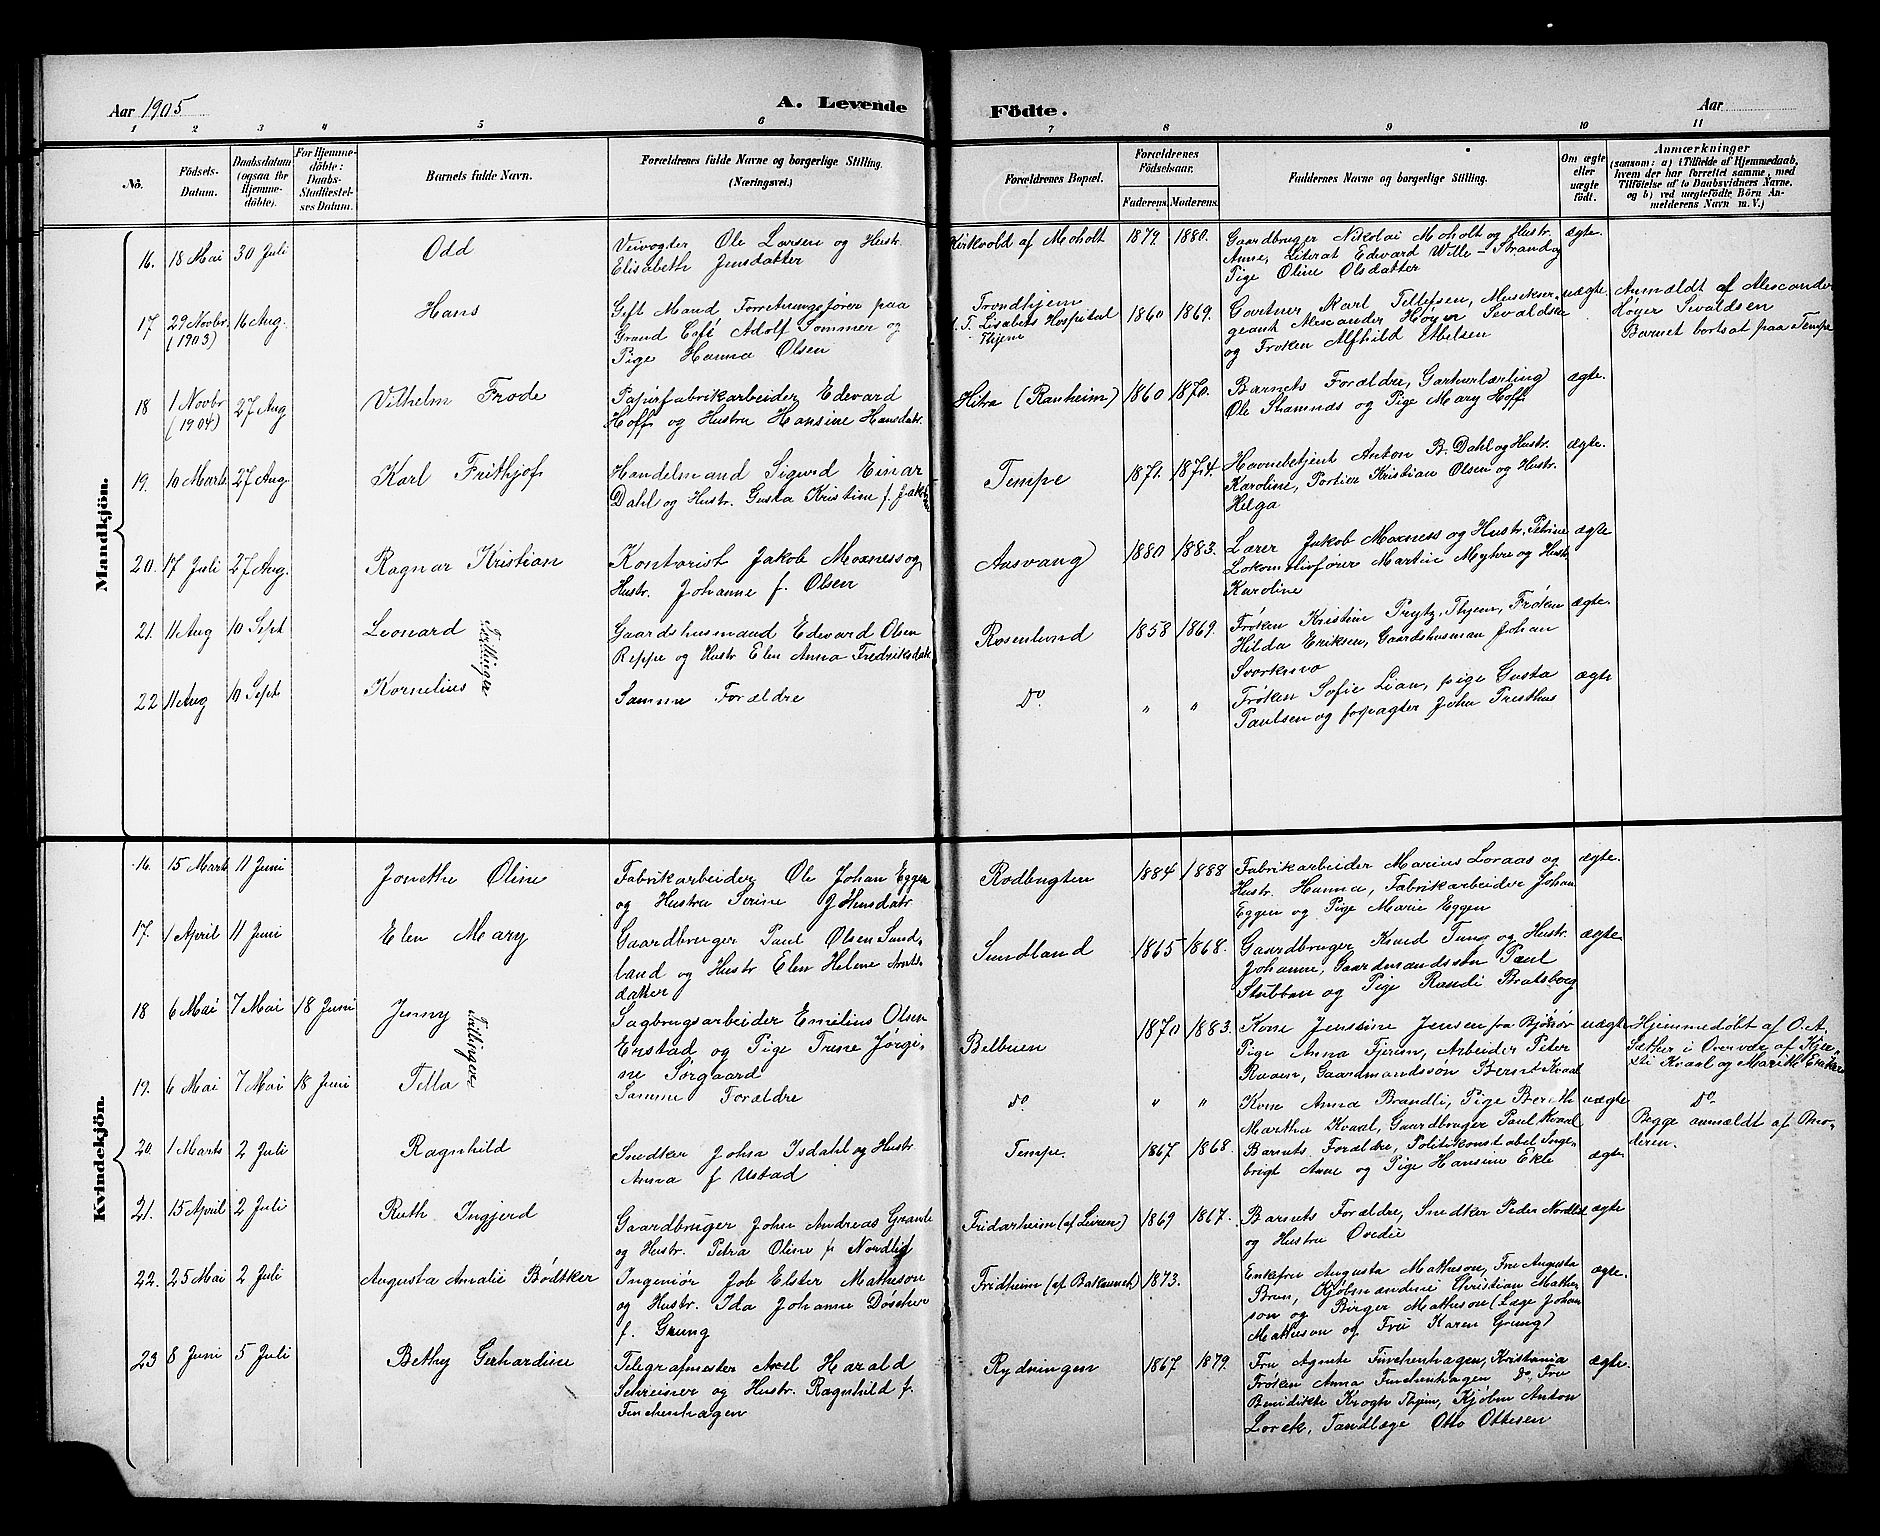 Aar 1905
A. Levende Födte.
Aar
1 2 3 4 5 6 7 8 9 10 11
No.
Födsels-Datum.
Daabsdatum (ogsaa for Hjemme-döbte).
For Hjemme-döbte: Daabs-Stadfæstel-ses Datum.
Barnets fulde Navn.
Forældrenes fulde Navne og borgerlige Stilling. (Næringsvei.)
Forældrenes Bopæl.
Forældrenes Födselsaar.
Faderens. Moderens.
Faddernes Navne og borgerlige Stilling.
Om ægte eller uægte födt.
Anmærkninger
(saasom: a) i Tilfælde af Hjemmedaab, hvem der har forrettet samme, med Tilföielse af to Daabsvidners Navne, og b) ved uægtefödte Börn An-melderens Navn m. V.)
Mandkjön.
16. 18 Mai 30 Juli Odd
Veivogter Ole Larsen og Hustr.
Elisabeth Jensdatter
Kirkvold af Moholt 1879. 1880.
Gaardbruger Nikolai Moholt og Hustr.
Anne, Literat Edvard Wille-Strand og
Pige Oline Olsdatter
ægte.
17 29 Novbr. (1903) 16 Aug. Hans
Gift Mand Forretningsfører paa
Grand Café Adolf Sommer og
Pige Hanna Olsen
Trondhjem
T. Lisabets Hospital
Thjem
1860 1869.
Gartner Karl Tellefsen, Musikser-
geant Alexander Høyer Sivaldsen
og Frøken Alfhild Abelsen
uægte.
Anmældt af Alexander
Høyer Sivaldsen
Barnet bortsat paa Tempe
18 1 Novbr (1904) 27 Aug Vilhelm Frode
Papirfabrikarbeider Edevard
Hoff og Hustru Hansine Hansdatr.
Hitra (Ranheim) 1860 1870.
Barnets Forældre, Gartnerlærling
Ole Stamnæs og Pige Mary Hoff
ægte.
19. 10 Marts 27 Aug Karl Frithjof
Handelmand Sigurd Einar
Dahl og Hustr. Gusta Kristine f. Jakobsen
Tempe 1871. 1874.
Havnebetjent Anton B. Dahl og Hustr.
Karoline, Portier Kristian Olsen og Hustr.
Helga
ægte.
20. 17 Juli 27 Aug. Ragnar Kristian
Kontorist Jakob Moxness og
Hustr. Johanne f. Olsen
Aasvang 1880 1883.
Lærer Jakob Moxness og Hustr. Petrine
Lokomotivfører Martin Myhre og Hustr.
Karoline
ægte
21. 11 Aug 10 Sept Leonard
Tvillinger
Gaardshusmand Edevard Olsen
Reppe og Hustr Elen Anna Fredriksdatr
Rosenlund 1858 1869.
Frøken Kristine Prytz, Thjem, Frøken
Hilda Eriksen, Gaardshusman Johan
Svorksmo
ægte.
22 11 Aug 10 Sept Kornelius
Samme Forældre
Do " "
Frøken Sofie Lian, pige Gusta
Paulsen og forpagter John Presthus
ægte
Kvindekjön.
16. 15 Marts 11 Juni Jonetha Oline
Fabrikarbeider Ole Johan Eggen
og Hustru Serine J Hansdatr
Rodbugten 1884 1888
Fabrikarbeider Marius Loraas og
Hustr. Hanna, Fabrikarbeider Johan
Eggen og Pige Marie Eggen
ægte.
17. 1 April 11 Juni Elen Mary
Gaardbruger Paul Olsen Sund-
land og Hustr Elen Helene Arnts-
datter
Sundland 1865 1868.
Gaardbruger Knud Tung og Hustr.
Johanne, Gaardmandssøn Paul
Stubban og Pige Randi Bratsberg
ægte
18 6 Mai 7 Mai 18 Juni Jenny
Tvillinger
Sagbrugsarbeider Emilius Olsen
Enstad og Pige Trine Jørgi-
ne Sørgaard
Belbuen 1870 1883.
Kone Jenssine Jensen fra Bjørnør
Pige Anna Tjerem, Arbeider Peter
Raaen, Gaardmandssøn Bernt Kvaal
uægte
Hjemmedöbt af O. A.
Sæther i Overvær af Kjer-
sti Kvaal og Marith
19. 6 Mai 7 Mai 18 Juni Tella
Samme Forældre
do " "
Kone Anna Brandli, Pige Berit
Martha Kvaal, Gaardbruger Paul Kvaal
uægte
Do
Begge anmældt af Mo-
deren.
20. 1 Marts 2 Juli Ragnhild
Snedker Johan Isdahl og Hustr
Anna f Ustad
Tempe. 1867 1868.
Barnets Forældre, Politikonstabel Inge-
brigt Aune og Pige Hansine Ekle
ægte
21. 15 April 2 Juli Ruth Ingjerd
Gaardbruger John Andreas Granli
og Hustr. Petra Oline f. Nordlid
Fridarheim (af Leiren) 1869 1867.
Barnets Forældre, Snedker Peder Nordlid
og Hustru Ovedie
ægte
22. 25 Mai 2 Juli Augusta Amalie Bödtker
Ingeniör Job Elster Matheson
og Hustr. Ida Johanne Döscher
f. Grung
Fridheim (af Bakaunet) 1873.
Enkefru Augusta Matheson, Fru Augusta
Brun, Kjøbmændene Christian Mathe-
son og Birger Matheson (Læge Johan
Matheson og Fru Karen Grung)
ægte.
23 8 Juni 5 Juli Bethy Gerhardine
Telegrafmester Axel Harald
Schreiner og Hustr. Ragnhild f.
Finchenhagen
Rydningen 1867 1879.
Fru Agnete Finchenhagen, Kristiania
Frøken Anna Finchenhagen do, Fru
Benedikte Krogh Thjem, Kjøbm Anton
Lorck, Tandlæge Otto Ottesen
ægte.